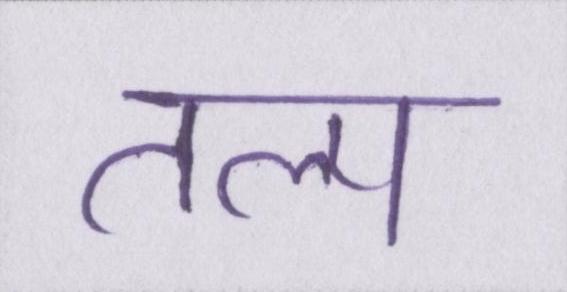 तल्प